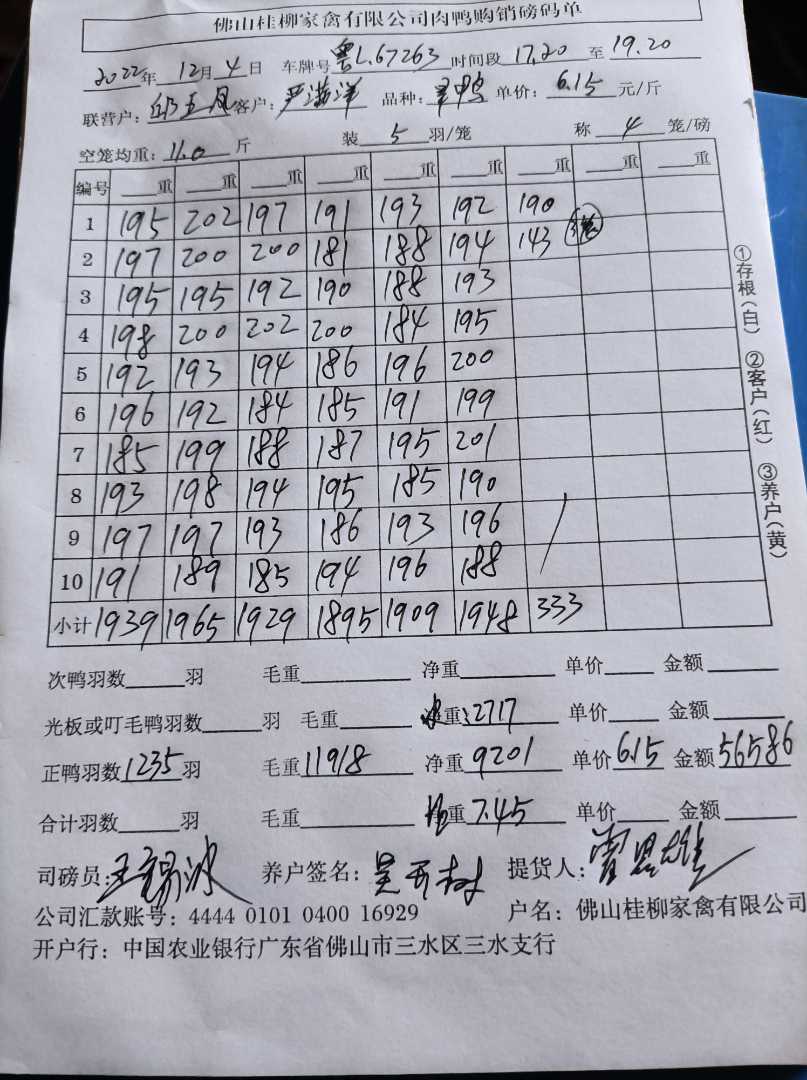 佛山桂柳家禽有限公司肉鸭购销磅码单
2022年 12月 4日 车牌号 粤L.67263 时间段 17.20 至 19.20
联营户: 客户: 严海洋 品种: 单价: 6.15 元/斤
空笼均重: 11.0 斤 装 5 羽/笼 称 4 笼/磅
编号 重 重 重 重 重 重 重 重 重
1 195 202 197 191 193 192 190
2 197 200 200 181 188 194 143
3 195 195 192 190 188 193
4 198 200 202 200 184 195
5 192 193 194 186 196 200
6 196 192 184 185 191 199
7 185 199 188 187 195 201
8 193 198 194 195 185 190
9 197 197 193 186 193 196
10 191 189 185 194 196 188
小计 1939 1965 1929 1895 1909 1948 333
次鸭羽数 羽 毛重 净重 单价 金额
光板或叮毛鸭羽数 羽 毛重 重: 2717 单价 金额
正鸭羽数 1235 羽 毛重 11918 净重 9201 单价 6.15 金额 56586
合计羽数 羽 毛重 重 7.45 单价 金额
司磅员: 养户签名: 提货人:
公司汇款账号: 4444 0101 0400 16929 户名: 佛山桂柳家禽有限公司
开户行: 中国农业银行广东省佛山市三水区三水支行
①存根(白) ②客户(红) ③养户(黄)